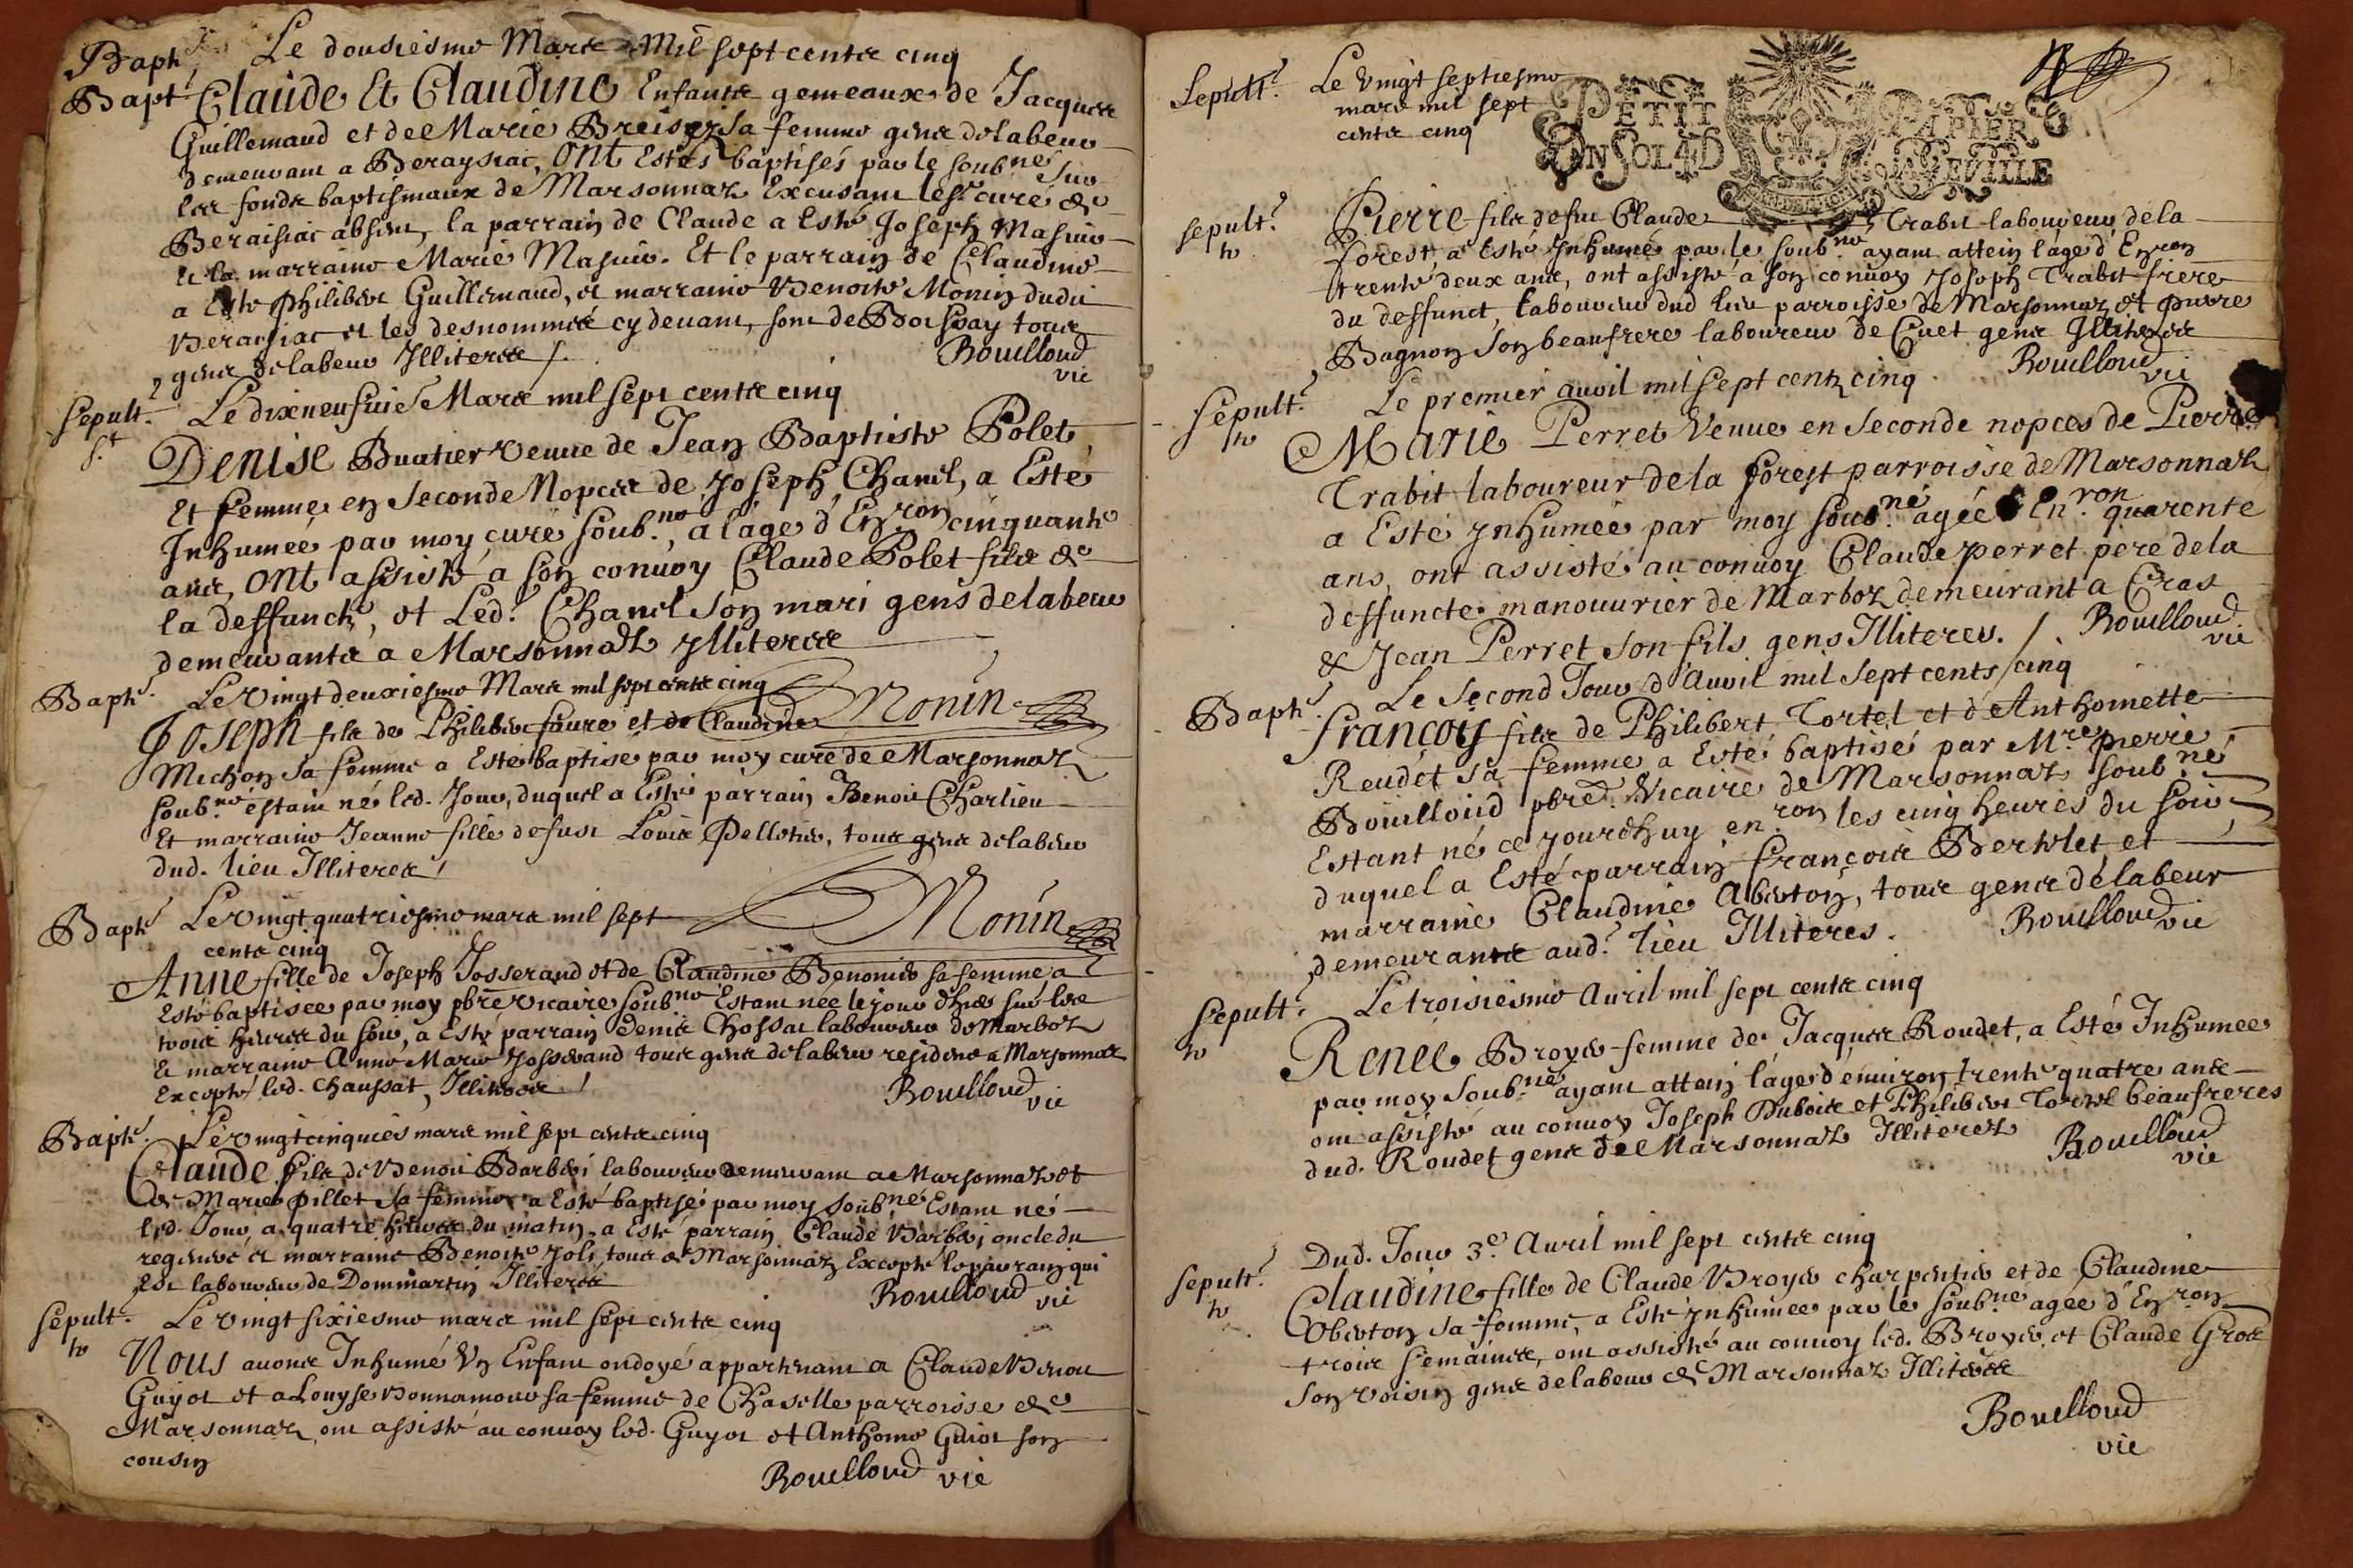 Baph.^e Le dousiesme Mars Mil sept cents cinq
Bapt Claude Et Claudine Enfants gemeaux de Jacques
Guillemaud et de Marie sa femme gens de labeur
demeurant a Beraysiac, ont Estés baptisés par le soub.né sur
les fonds baptismaux de Marsonnaz Excusant le sr curé de
Beraisiac absent, la parrain de Claude a Esté Joseph Masuir
et la marraine Marie Masuir. Et le parrain de Claudine
a Esté Philibert Guillemaud, et marraine Benoiste Monin dudit
Beraysiac et les desnommés cy devant, sont de tous
gens de labeur Illiteres /.
Bouilloud
vic
Sepult.^e Le dixneufuie Mars mil sept cents cinq
s.t
Denise Buatier veuue de Jean Baptiste Polet,
Et femme en seconde Nopces de Joseph Chanel, a Esté
Inhumée par moy curé soub.né, a l'age d'En.ron cinquante
ans, ont assisté a son conuoy Claude Polet fils de
la deffuncte, et Led.^t Chanel son mari gens de labeur
demeurants a Marsonnaz Illiteres
Monin
Baph.^e Le vingt deuxiesme Mars mil sept cents cinq
Joseph fils de Philibert faure et de Claudine
Michon sa femme a Esté baptisé par moy curé de Marsonnaz
soub.né estant né led. Jour, duquel a Esté parrain Benoit Charlieu
Et marraine Jeanne fille de fust Louis Pelletier, tous gens de labeur
dud. lieu Illiteres /
Monin
Baph.^e Le vingt quatriesme mars mil sept
cents cinq
Anne fille de Joseph Josserand et de Claudine sa femme a
Esté baptisee par moy pbre vicaire soub.né Estant née le jour d'hier sur les
trois heures du soir, a Esté parrain Denis Chossat laboureur de Marboz
et marraine Anne Marie Josserand tous gens de labeur residents a Marsonnas
Excepté led. Chaussat, Illiteres /
Bouilloud
vic
Baph.^e Le vingt cinquies mars mil sept cents cinq
Claude fils de Benoit Barbet laboureur demeurant a Marsonnaz et
de Marie Pillet sa femme a Esté baptisé par moy soub.né Estant né
led. Jour, a quatre heures du matin, a Esté parrain Claude Barbet oncle du
regeneré et marraine Benoite Joli, tous de Marsonnaz Excepté le parrain qui
Est laboureur de Dommartin Illiteres
Bouilloud
vic
Sepult.^e Le vingt sixiesme mars mil sept cents cinq
te
Nous auons Inhumé Un Enfant ondoyé appartenant a Claude Benoit
Guyot et a Louyse Bonnamour sa femme de Chaselle parroisse de
Marsonnaz, ont assisté au conuoy led. Guyot et Anthome Guiot son
cousin
Bouilloud vic
Sepult.^e Le vingt septiesme
mars mil sept
cents cinq
PETIT PAPIER
UN SOL 4 D LA FEUILLE
sepult.^e
te
Pierre fils de fut Claude Trabit laboureur de la
forest, a Esté Inhumé par le soub.né ayant attein l'age d'En.ron
trente deux ans, ont assisté a son conuoy Joseph Trabit frere
du deffunct, laboureur dud. lieu parroisse de Marsonnaz et Pierre
Bagnon son beaufrere laboureur de Cuet gens Illiteres
Bouilloud
vic
Sepult.^e Le premier auvil mil sept cents cinq
te
Marie Perret Veuue en seconde nopces de Pierre
Trabit laboureur de la forest parroisse de Marsonnaz
a Esté Inhumée par moy soub.né agée d'En.ron quarente
ans, ont assisté au conuoy Claude Perret pere de la
deffuncte manouurier de Marboz demeurant a Cras
& Jean Perret son fils gens Illiteres. /.
Bouilloud
vic
Baph.^e Le second Jour d'Auvil mil sept cents cinq
Françoy fils de Philibert Tortel et d'Anthomette
Reudet sa femme a Esté baptisé par M.re Pierre
Bouilloud pbre Vicaire de Marsonnaz soub.né
Estant né ce jourdhuy en.ron les cinq heures du soir
duquel a Esté parrain François Bertelet et
marraine Claudine Oberton, tous gens de labeur
demeurants aud.^t lieu Illiteres.
Bouilloud vic
Sepult.^e Le troisiesme Auril mil sept cents cinq
te
Renée Broyer femme de Jacques Roudet, a Esté Inhumée
par moy soub.né ayant attein l'age d'enuiron trente quatre ans
ont assisté au conuoy Joseph Dubois et Philibert Tortel beaufreres
dud. Roudet gens de Marsonnaz Illiterez
Bouilloud
vic
Dud. Jour 3.e Auril mil sept cents cinq
sepult.^e
te
Claudine fille de Claude Broyer charpentier et de Claudine
Oberton sa femme, a Esté Inhumée par le soub.né agée d'En.ron
trois semaines, ont assisté au conuoy led. Broyer, et Claude Gros
son voisin gens de labeur de Marsonnaz Illiteres
Bouilloud
vic